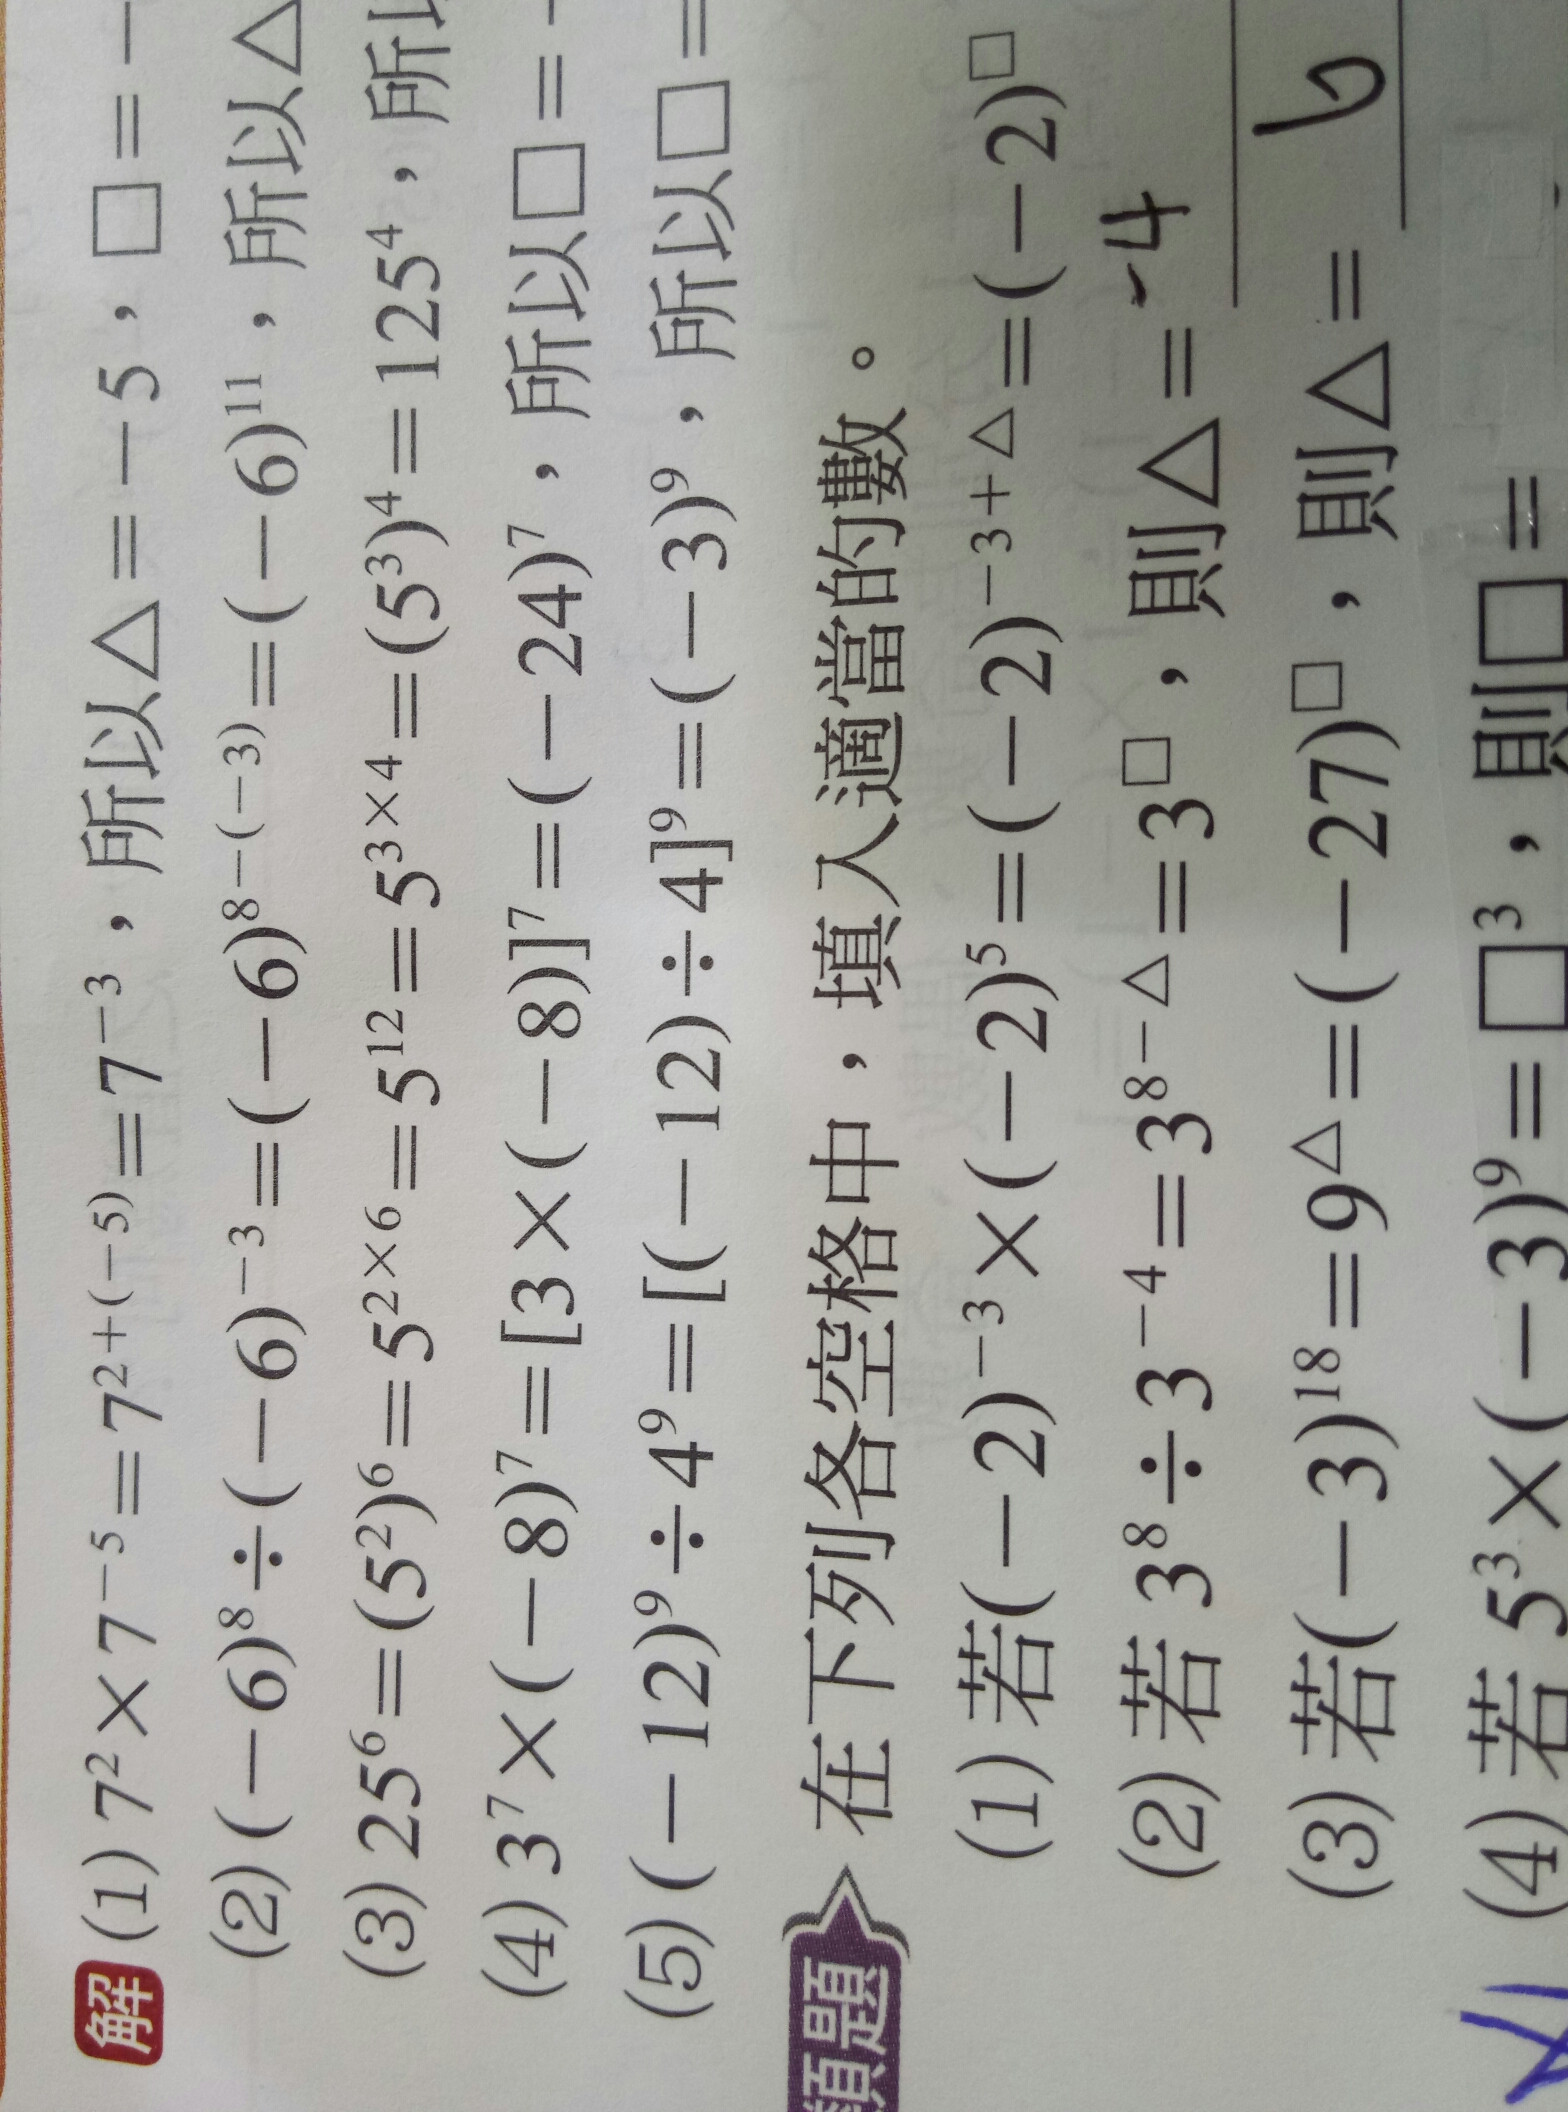 解 (1) 7²×7⁻⁵=7²⁺⁽⁻⁵⁾=7⁻³，所以△=-5，□=-
(2) (-6)⁸÷(-6)⁻³=(-6)⁸⁻⁽⁻³⁾=(-6)¹¹，所以△
(3) 25⁶=(5²)⁶=5²ˣ⁶=5¹²=5³ˣ⁴=(5³)⁴=125⁴，所以
(4) 3⁷×(-8)⁷=[3×(-8)]⁷=(-24)⁷，所以□=-
(5) (-12)⁹÷4⁹=[(-12)÷4]⁹=(-3)⁹，所以□=
類題 在下列各空格中，填入適當的數。
(1) 若(-2)⁻³×(-2)⁵=(-2)^(-3+△)=(-2)^□
(2) 若 3⁸÷3⁻⁴=3^(8-△)=3^□，則△=-4
(3) 若(-3)¹⁸=9^△=(-27)^□，則△=
(4) 若 5³×(-3)⁹=□³，則□=